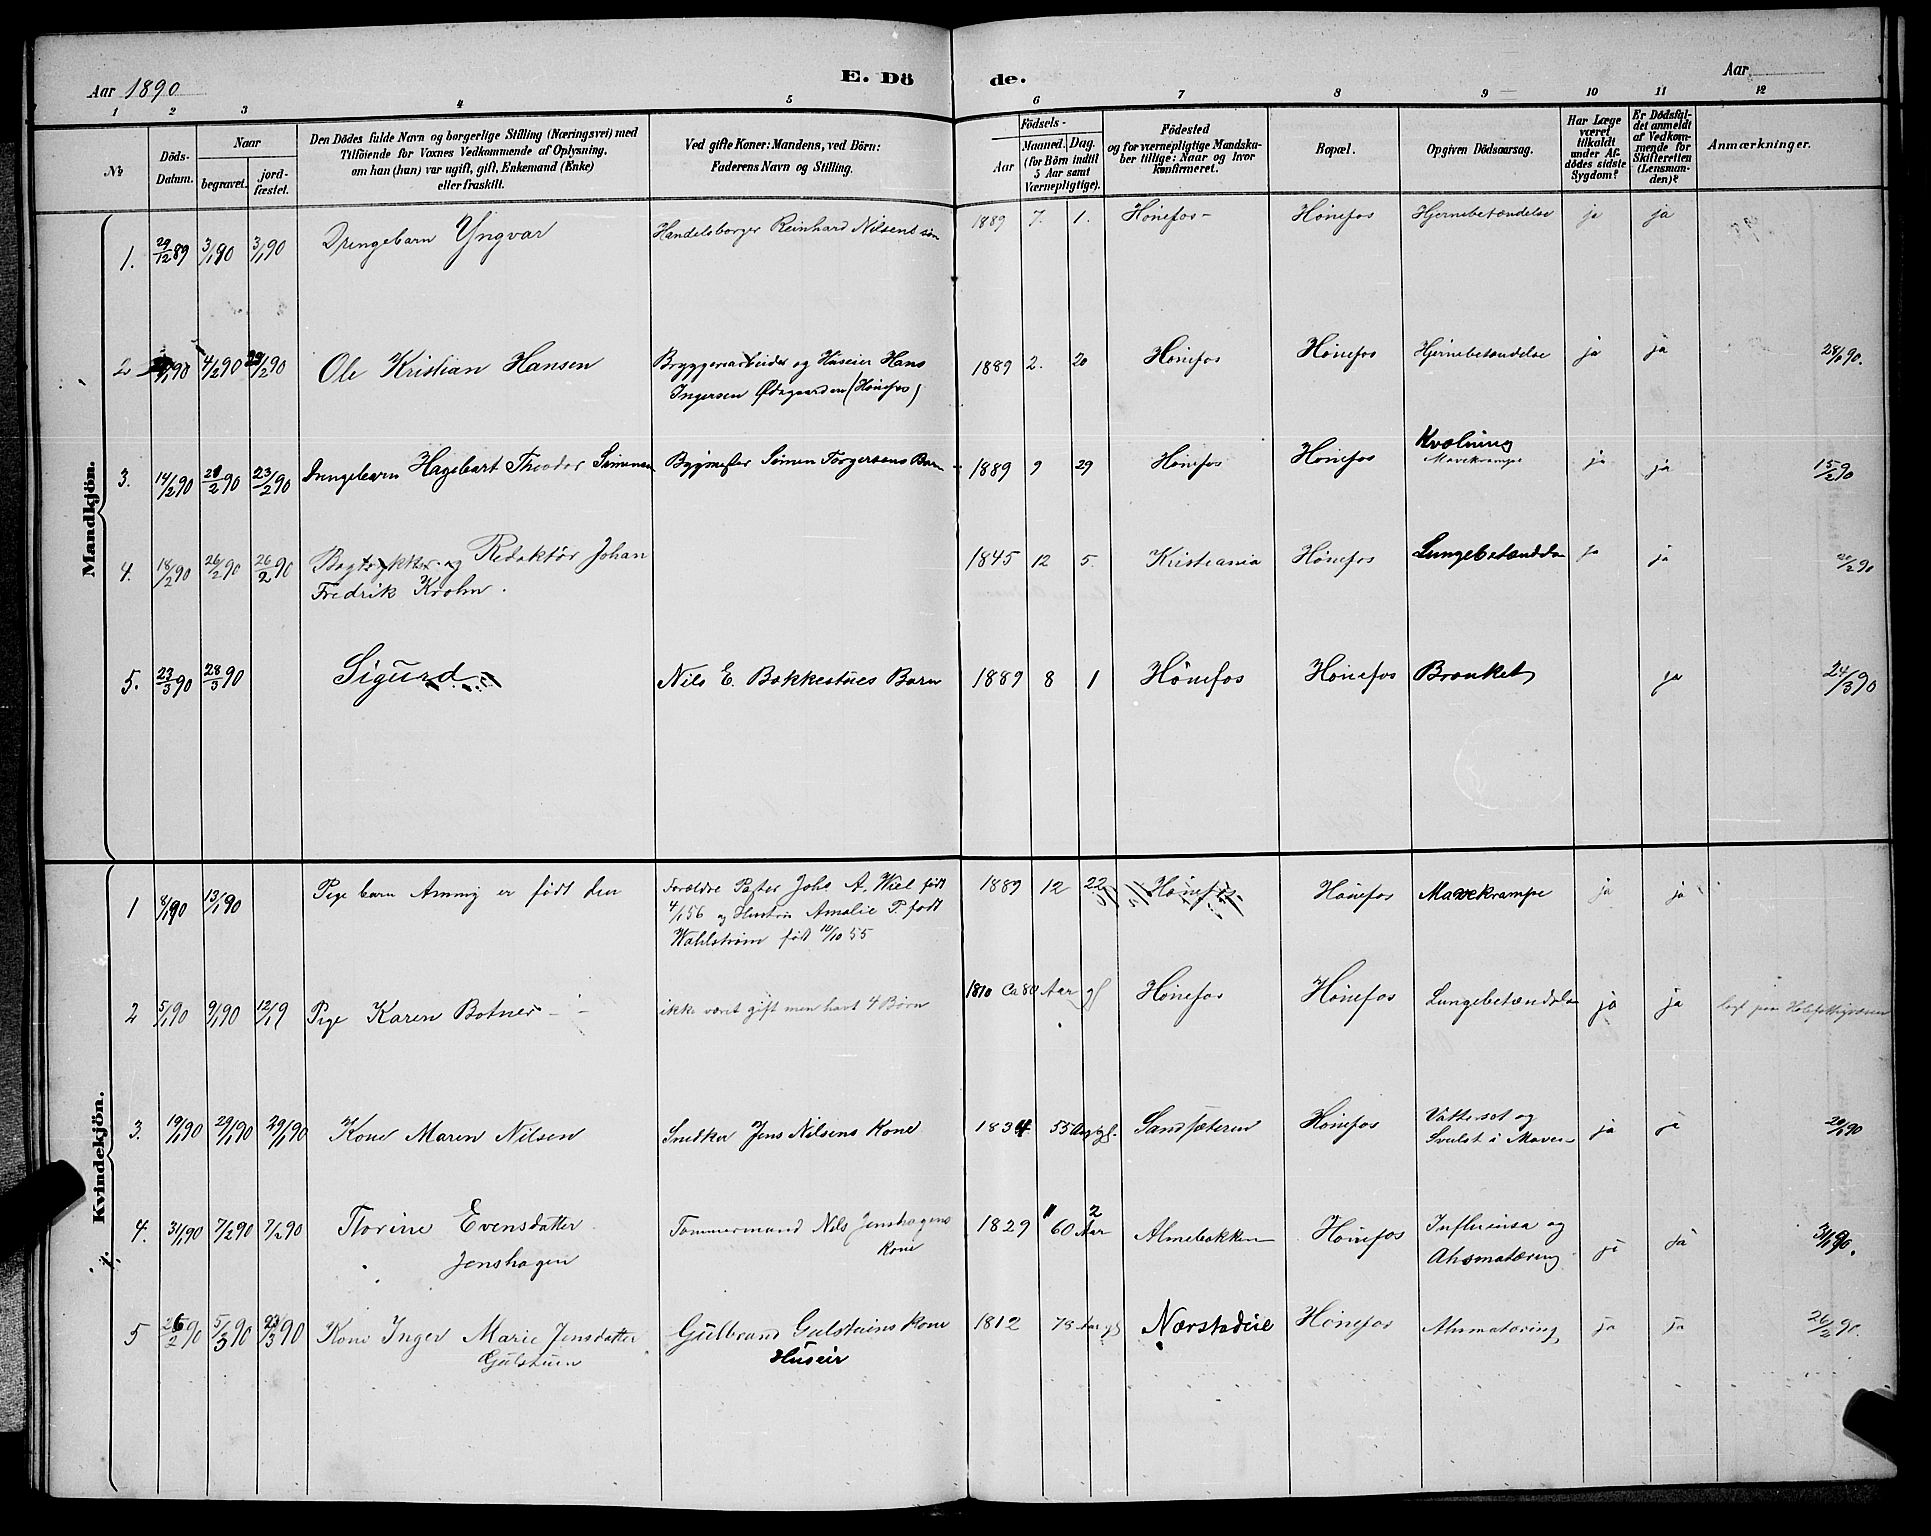 Aar 1890 E. Dö de. Aar
1 2 3 4 5 6 7 8 9 10 11 12
No Döds-Datum. Naar begravet. jordfæstet. Den Dödes fulde Navn og borgerlige Stilling (Næringsvei) med Tilföiende for Voxnes Vedkommende af Oplysning, om han (hun) var ugift, gift, Enkemand (Enke) eller fraskilt. Ved gifte Koner: Mandens, ved Börn: Faderens Navn og Stilling. Födsels- Aar Maaned. Dag. (for Börn indtil 5 Aar samt Værnepligtige). Födested og for værnepligtige Mandskaber tillige: Naar og hvor konfirmeret. Bopæl. Opgiven Dödsaarsag. Har Læge været tilkaldt under Afdödes sidste Sygdom? Er Dödsfaldet anmeldt af Vedkommende for Skifteretten (Lensmanden)? Anmærkninger.
Mandkjön.
1. 29/12 89 3/1 90 3/1 90 Drengebarn Yngvar Handelsborger Reinhard Nilsens søn 1889 7. 1. Hönefos - Hönefos Hjernebetændelse ja ja
2 /1 90 4/2 90 23/2 90 Ole Kristian Hansen Bryggeriarbeider og Huseier Hans 1889 2. 20 Hönefos Hönefos Hjernebetændelse ja ja 28/1 90.
Ingersen Ødegaarden (Hönefos)
3. 14/2 90 21/2 90 23/2 90 Drengebarn Hagebart Theodor Simensen Bygmester Simen Torgersens Barn 1889 9 29 Hönefos Hönefos Kvælning ja ja 15/2 90
Mavekrampe
4. 18/2 90 26/2 90 26/2 90 Bogtrykker og Redaktör Johan 1845 12 5. Kristiania Hönefos Lungebetændelse ja ja 20/2 90
Fredrik Krohn.
5. 23/3 90 28/3 90 Sigurd Nils E. Bakkestues Barn 1889 8 1 Hönefos Hönefos Bronket ja 24/3 90
Kvindekjön.
1 8/1 90 13/1 90 Pige barn Ammy er født den Forældre Pastor Johs A. Wiel født 1889 12 22 Hönefos Hönefos Mavekrampe ja ja
4/1 56 og Hustru Amalie P. født
Wahlström født 10/10 55
2 5/1 90 9/1 90 12/1 9 Pige Karen Botner - - ikke været gift men havt 4 Börn 1810 Ca 80 Aar gl Hönefos Hönefos Lungebetændelse ja ja
3. 19/1 90 29/1 90 29/1 90 Kone Maren Nilsen Snedker Jens Nilsens Kone 1834 55 Aar gl. Sandsæteren Hönefos Vattersot og ja ja 20/1 90
Svulst i Maven
4. 31/1 90 7/2 90 7/2 90 Torine Evensdatter Tømmermand Nils Jenshagens 1829 11 2 60 Aar Almebakken Hönefos Influensa og ja ja 31/1 90.
Jenshagen Kone Ahsmatæring
5 26/2 90 5/3 90 23/3 90 Kone Inger Marie Jensdatter Gulbrand Gulstuens Kone 1812 78 Aar gl Nærstadeie Hönefos Ahsmatæring ja ja 26/2 90.
Gulstuen Huseier